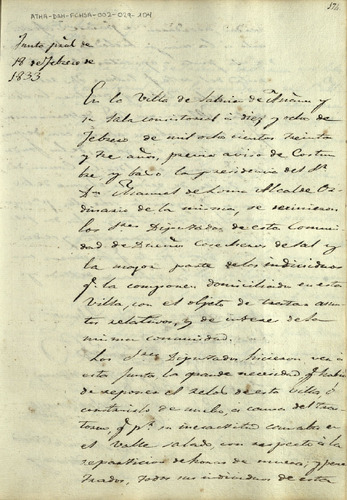 ATHA-DAH-FCHSA-002-029-104
126
Junta gral de
18 de Febrero de
1833
En la Villa de Salinas de Añana y
su Sala consistorial á diez y ocho de
Febrero de mil ochocientos treinta
y tres años, previo aviso de costum
bre, y bajo la presidencia del Sr
Dn Manuel de Alcalde Or
dinario de la misma, se reunieron
los Sres Diputados de esta Comuni
dad de Dueños Cosecheros de sal y
la mayor parte de los individuos
q. la componen domiciliados en esta
Villa, con el objeto de tratar asun
tos relativos, y de interes de la
misma comunidad.
Los Sres Diputados hicieron ver á
esta Junta la grande necesidad q. habia
de reponer el relox de esta villa ó
construirlo de nuevo, á causa del tras
torno, q. pr. su inesactitud causaba en
el Valle salado, con respecto á la
reparticion de horas de mueras, y pene
trados, todos sus individuos de esta